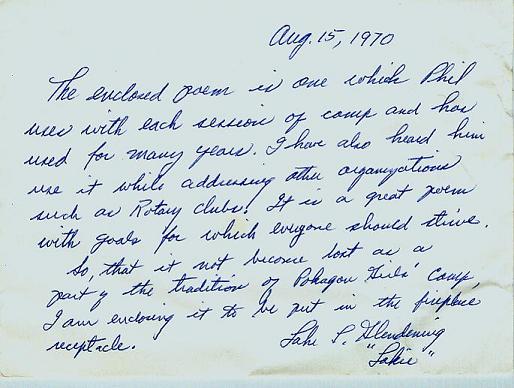 Aug. 15, 1970
The enclosed poem is one which Phil
uses with each session of camp and has
used for many years. I have also heard him
use it while addressing other organizations
such as Rotary Clubs. It is a great poem
with goals for which everyone should strive.
So, that it not become lost as a
part of the tradition of Pokagon Girls' Camp,
I am enclosing it to be put in the fireplace
receptacle.
S. Glendening
"Lakie"